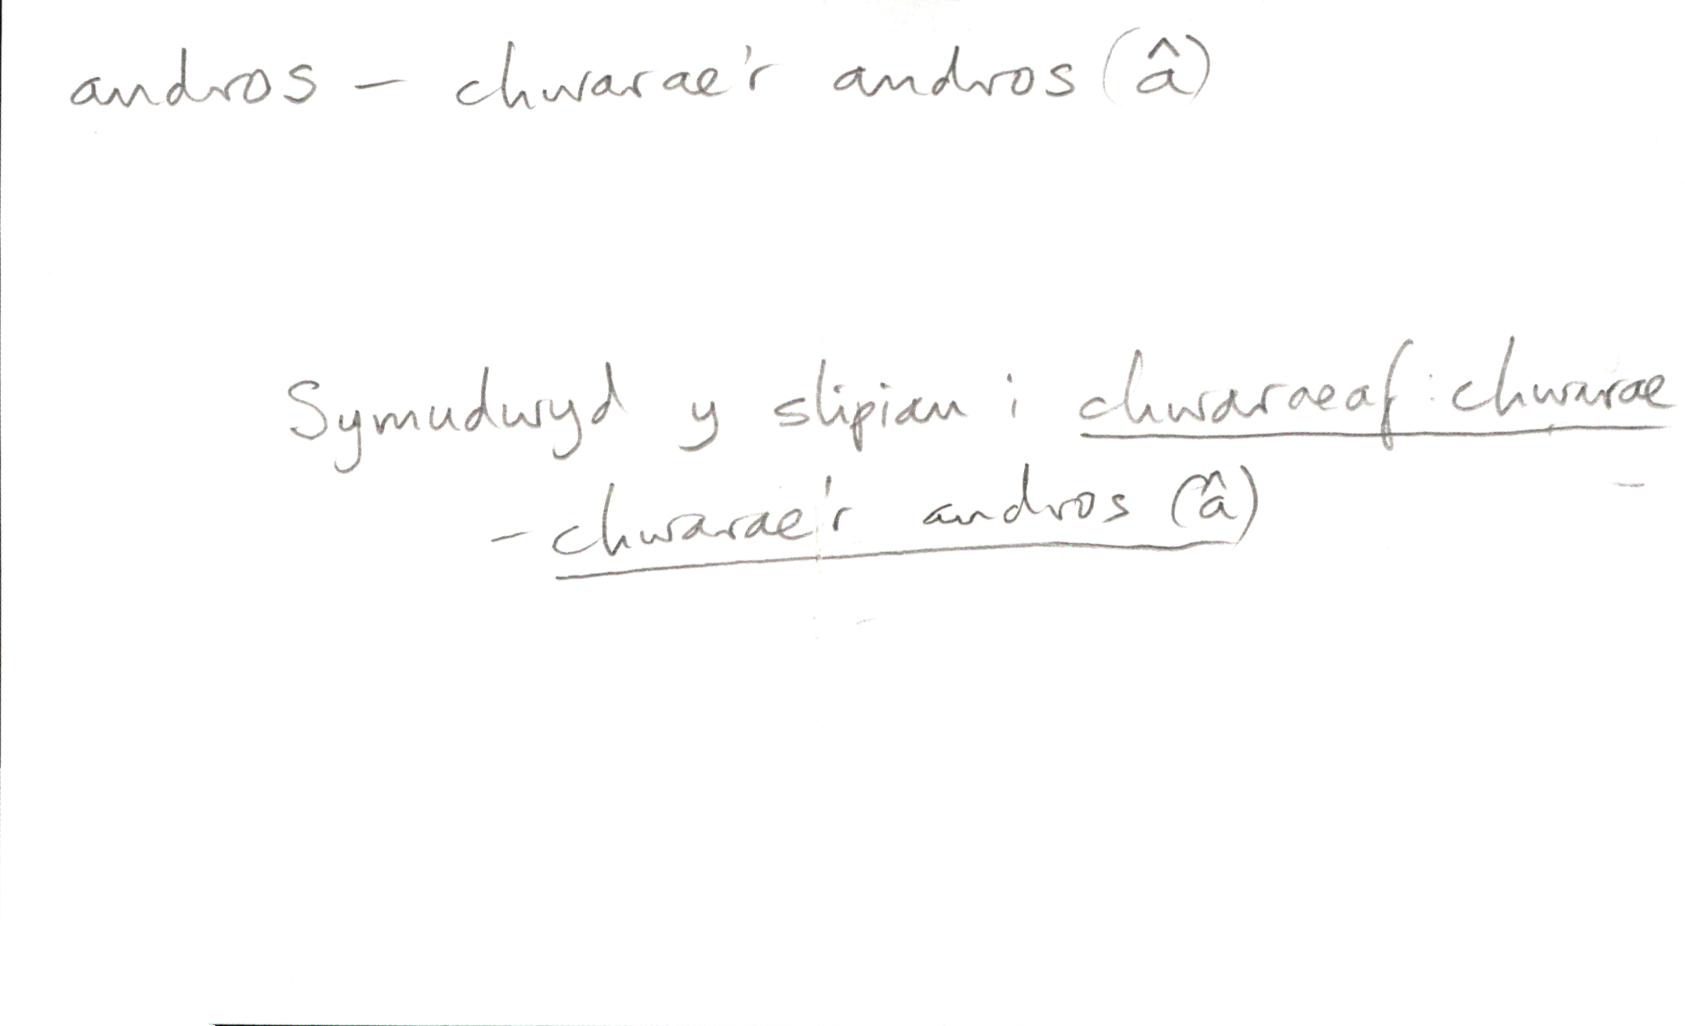 andros – chwarae'r andros (â)
Symudwyd y slipiau i chwaraeaf: chwarae
– chwarae'r andros (â)